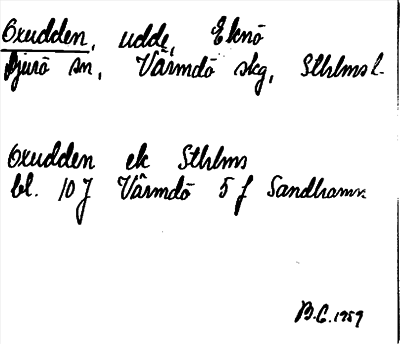 Oxudden, udde, Eknö
Djurö sn, Värmdö skg, Sthlms l.
Oxudden ek Sthlms
bl. 10 J Värmdö 5 f Sandhamn
B.G. 1959